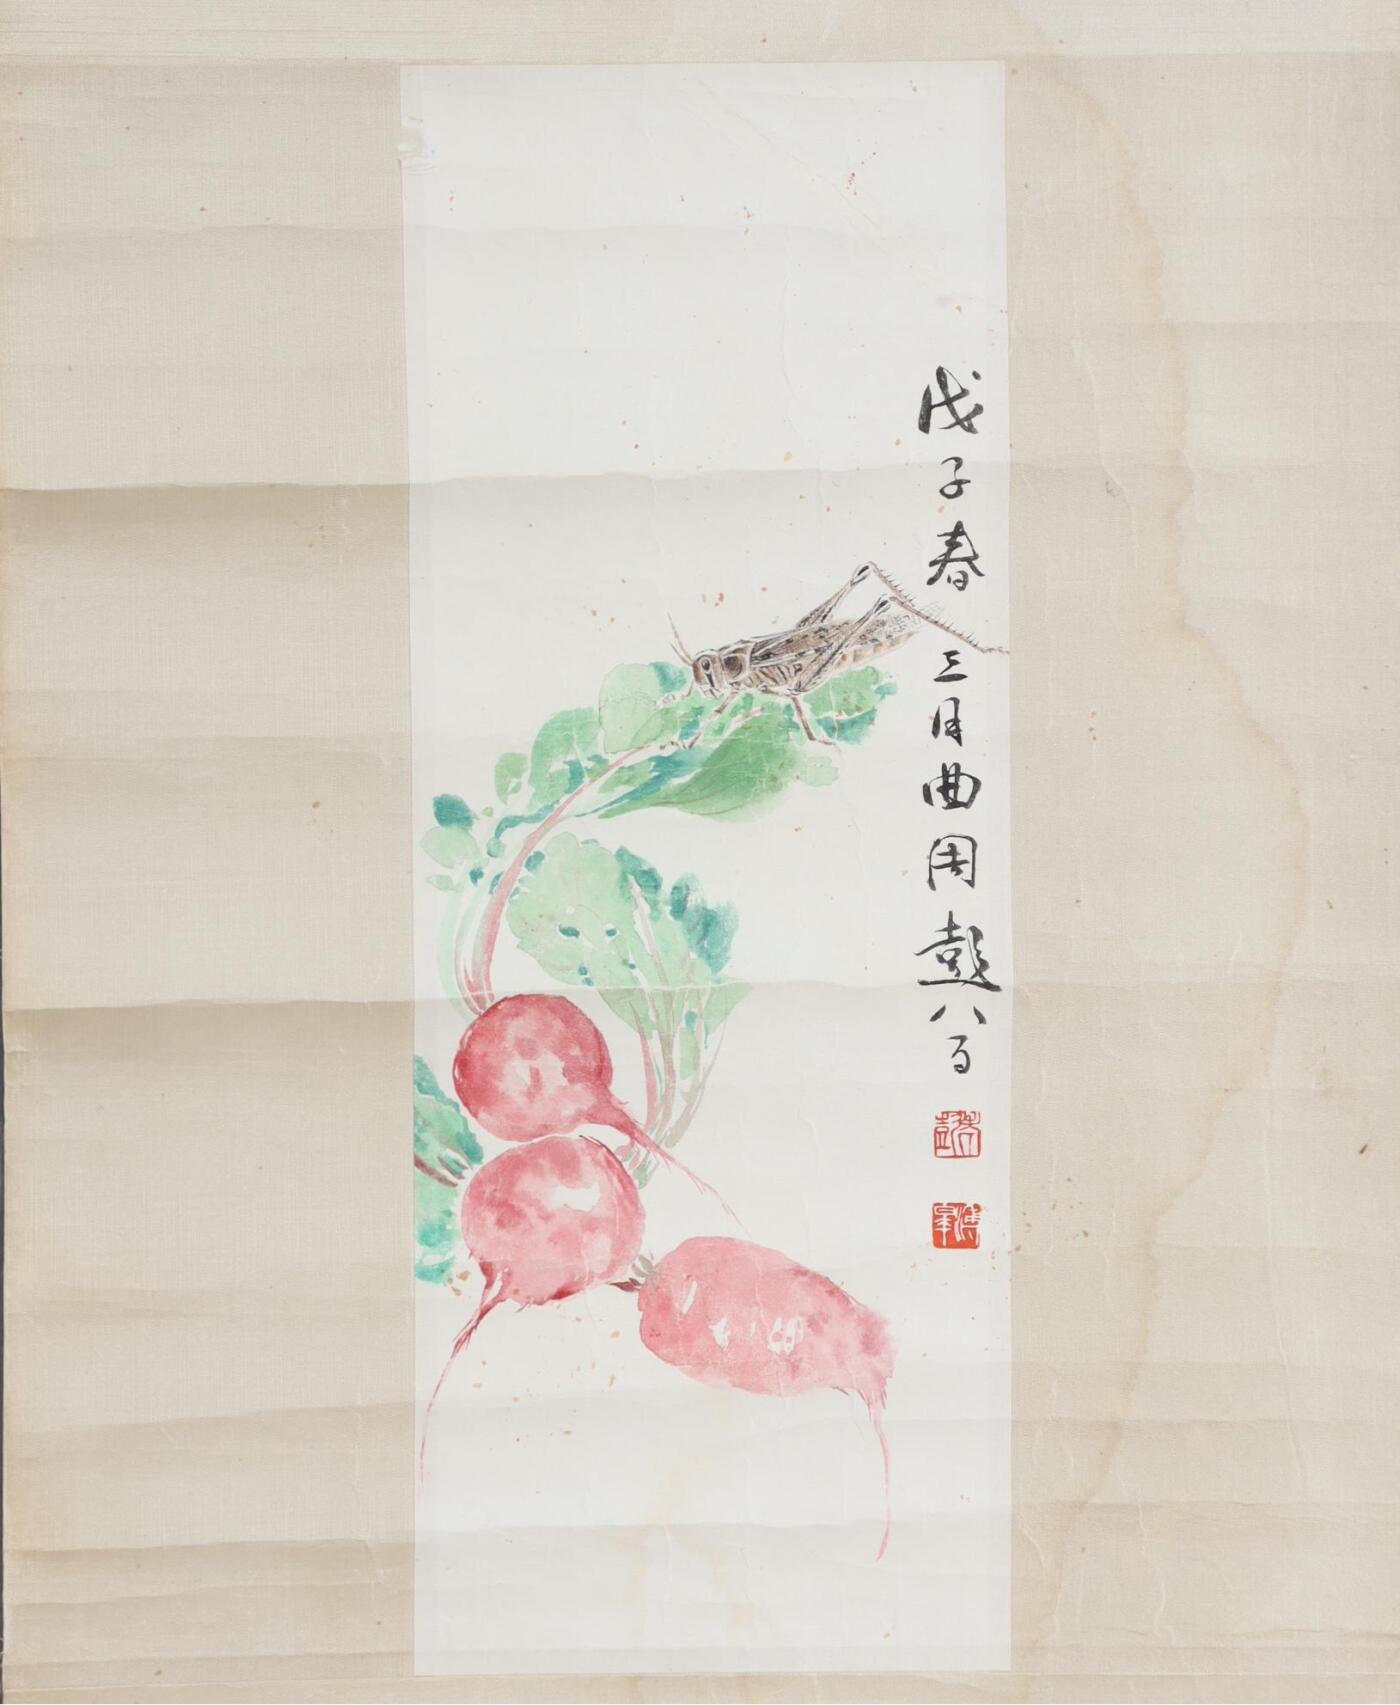 戊子春三月曲周彭八百